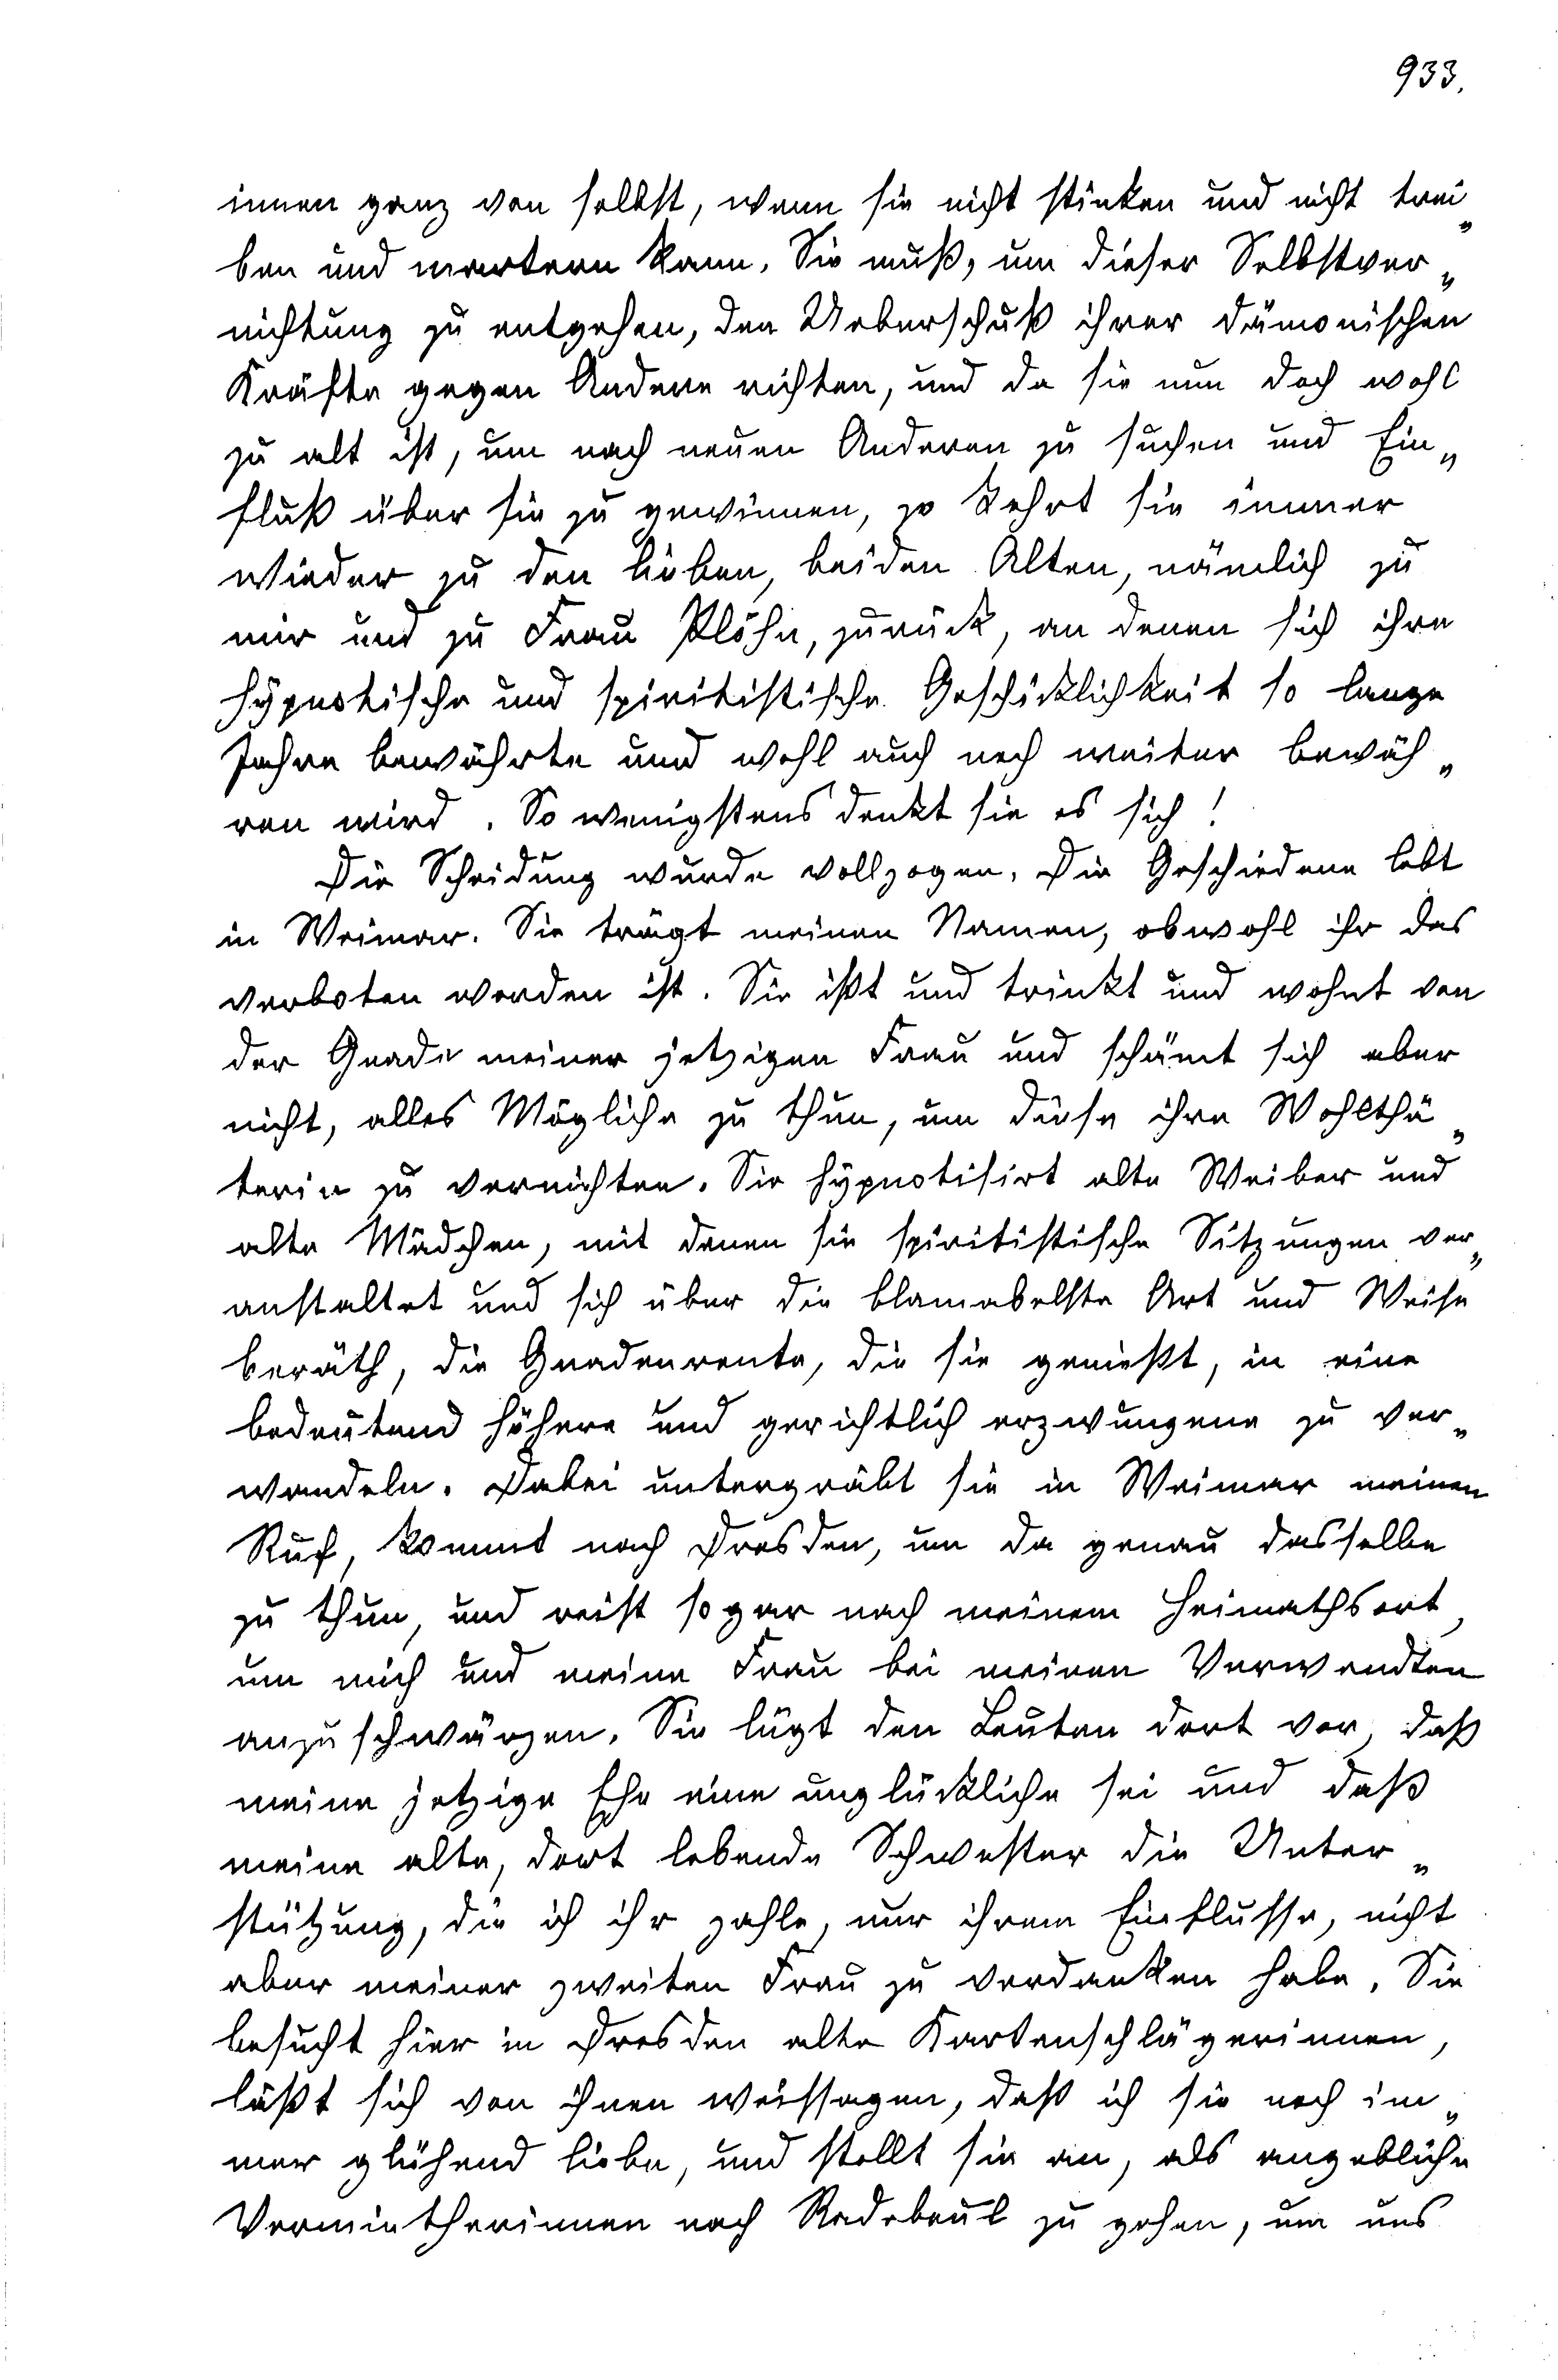 933.
innen ganz von selbst, wenn sie nicht stinken und nicht trei„
ben und martern kann. Sie muß, um dieser Selbstver„
nichtung zu entgehen, den Ueberschuß ihrer dämonischen
Kräfte gegen Andere richten, und da sie nun doch wohl
zu alt ist, um nach neuen Anderen zu suchen und Ein„
fluß über sie zu gewinnen, so kehrt sie immer
wieder zu den lieben, beiden Alten, nämlich zu
mir und zu Frau Plöhn, zurück, an denen sich ihre
hypnotische und spiritistische Geschicklichkeit so lange
Jahre bewährte und wohl auch noch weiter bewäh„
ren wird. So wenigstens denkt sie es sich!
Die Scheidung wurde vollzogen. Die Geschiedene lebt
in Weimar. Sie trägt meinen Namen, obwohl ihr das
verboten worden ist. Sie ißt und trinkt und wohnt von
der Gnade meiner jetzigen Frau und schämt sich aber
nicht, alles Mögliche zu thun, um diese ihre Wohlthä„
terin zu vernichten. Sie hypnotisirt alte Weiber und
alte Mädchen, mit denen sie spiritistische Sitzungen ver„
anstaltet und sich über die blamabelste Art und Weise
beräth, die Gnadenrente, die sie genießt, in eine
bedeutend höhere und gerichtlich erzwungene zu ver„
wandeln. Dabei untergräbt sie in Weimar meinen
Ruf, kommt nach Dresden, um da genau dasselbe
zu thun, und reist sogar nach meinem Heimathsort,
um mich und meine Frau bei meinen Verwandten
anzuschwärzen. Sie lügt den Leuten dort vor, daß
meine jetzige Ehe eine unglückliche sei und daß
meine alte, dort lebende Schwester die Unter„
stützung, die ich ihr zahle, nur ihrem Einflusse, nicht
aber meiner zweiten Frau zu verdanken habe. Sie
besucht hier in Dresden alte Kartenschlägerinnen,
läßt sich von ihnen weissagen, daß ich sie noch im„
mer glühend liebe, und stellt sie an, als angebliche
Vermietherinnen nach Radebeul zu gehen, um uns